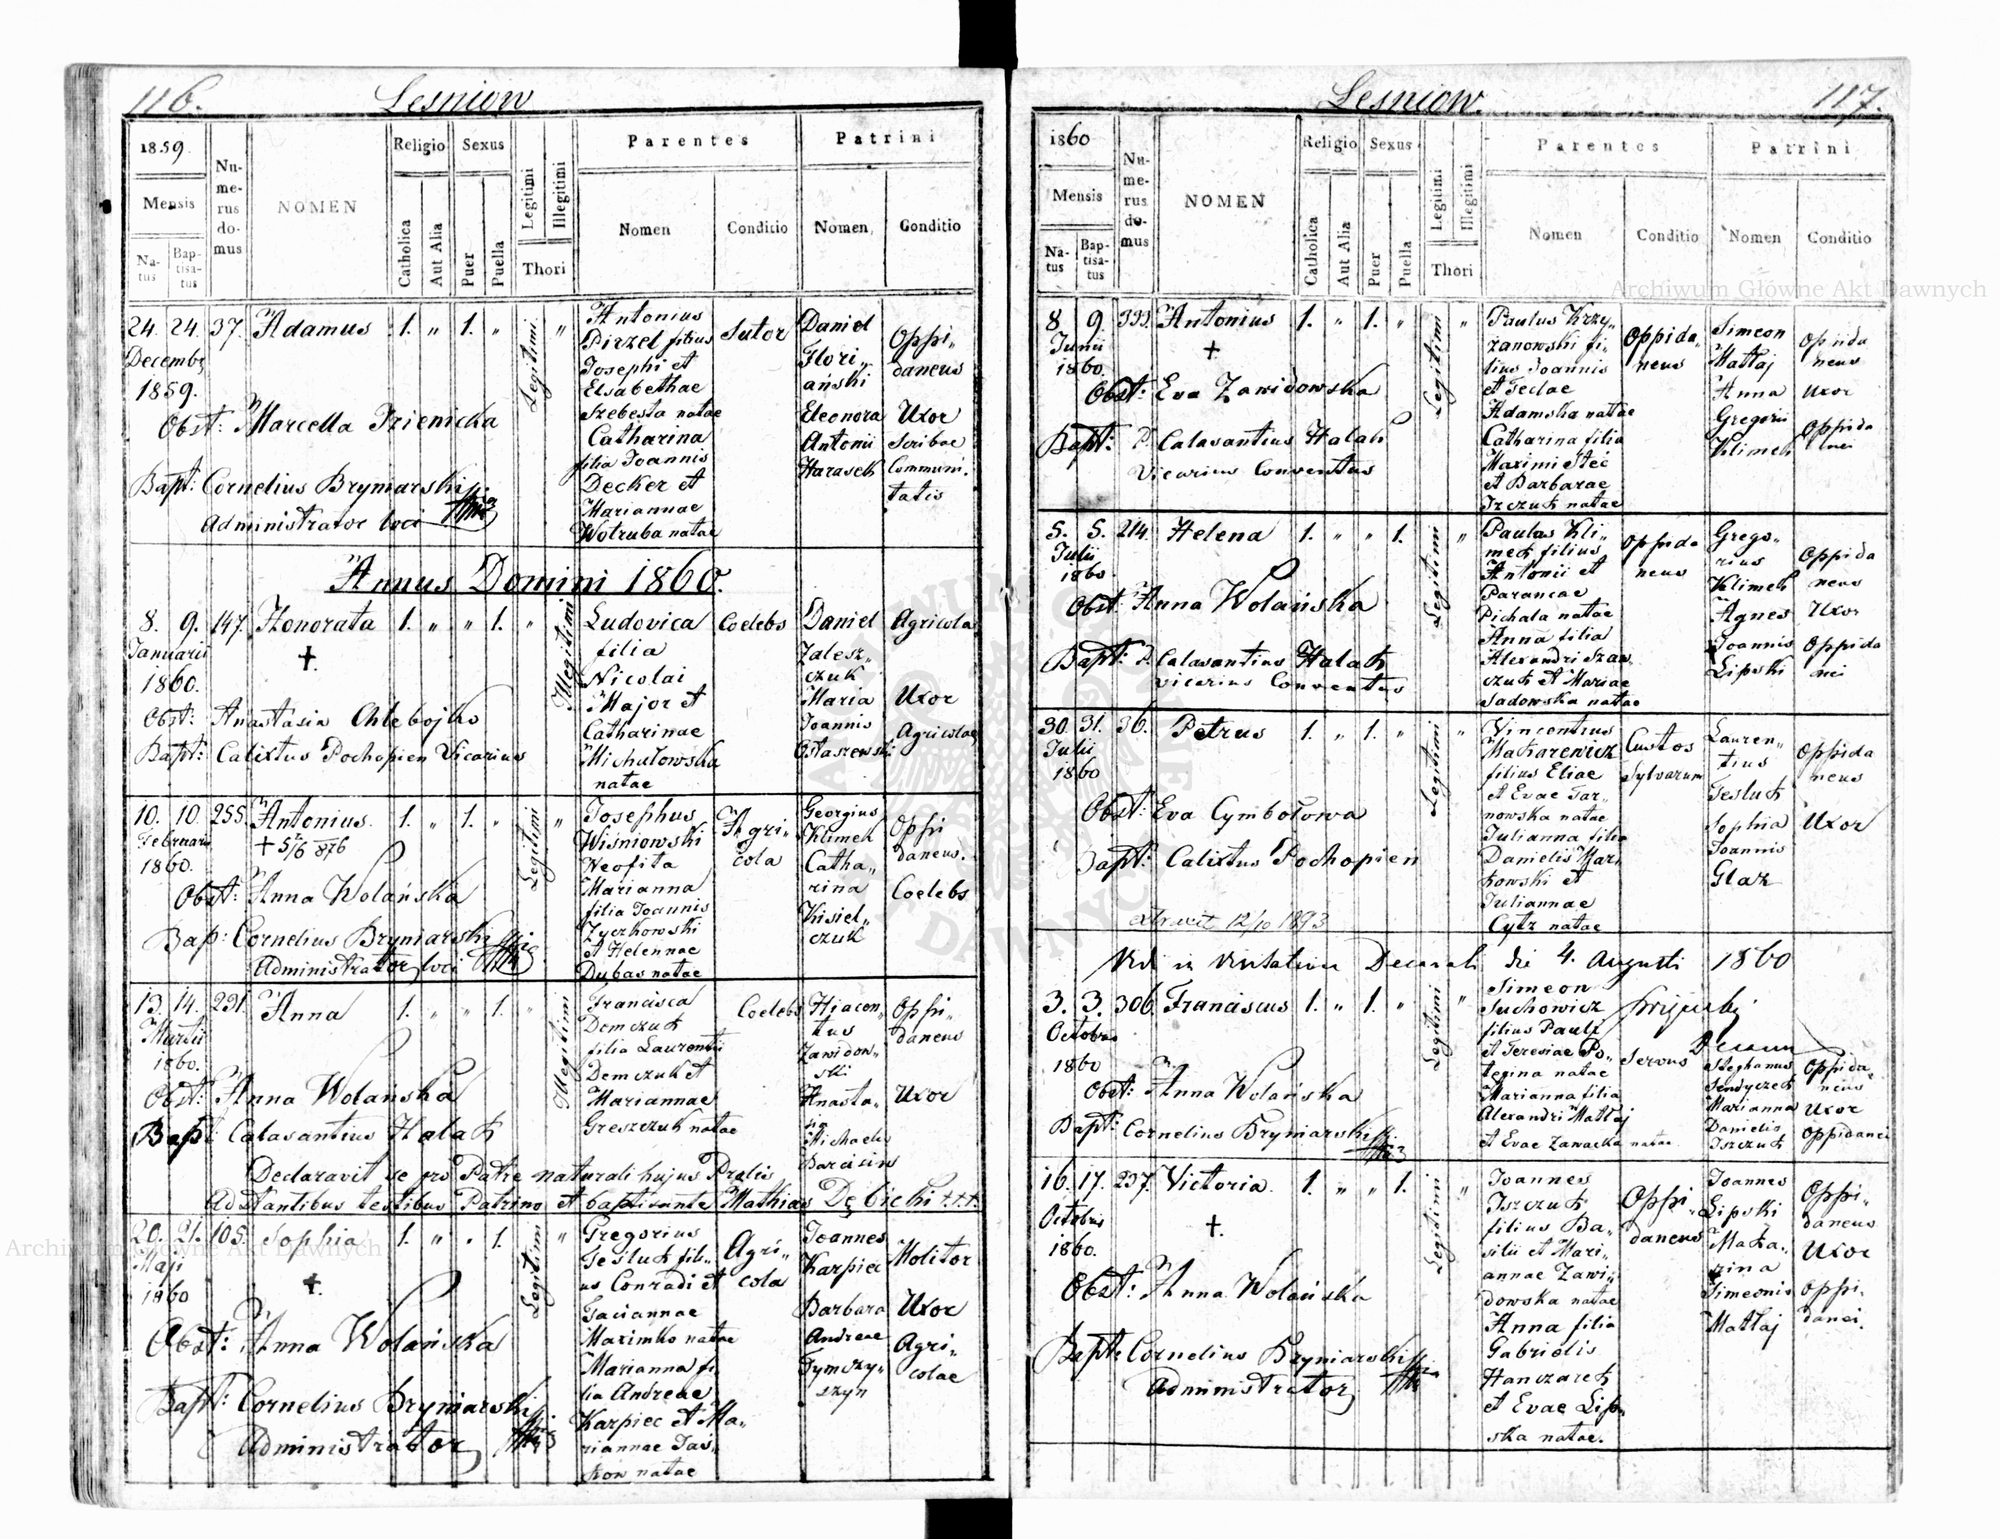 116. Lesniow
1859.
Mensis
Na-
tus
Bap-
tisa-
tus
Nu-
me-
rus
do-
mus
NOMEN
Religio
Catholica
Aut Alia
Sexus
Puer
Puella
Legitimi
Illegitimi
Thori
Parentes
Nomen
Conditio
Patrini
Nomen
Conditio
24. 24. 37. Adamus 1. „ 1. „ Legitimi „
Decembr
1859.
Obst: Marcella Trienicka
Bapt: Cornelius Bryniarski
Administrator loci
Antonius
Pirzel filius
Josephi et
Elsabethae
Szebesta natae
Catharina
filia Joannis
Decker et
Mariannae
Wotruba natae
Sutor
Daniel
Flori„
ański
Eleonora
Antonii
Harasek
Oppi„
daneus
Uxor
Scribae
Communi„
tatis
Annus Domini 1860.
8. 9. 147. Honorata 1. „ „ 1. „ Illegitimi
Januarii †.
1860.
Obst: Anastasia Chlebojko
Bapt: Calixtus Pochopien Vicarius
Ludovica
filia
Nicolai
Major et
Catharinae
Michułowska
natae
Coelebs
Daniel
Zalesz„
czuk
Maria
Joannis
Ostaszewski
Agricola
Uxor
Agricolae
10. 10. 255. Antonius. 1. „ 1. „ Legitimi „
Februarii † 5/6 876
1860.
Obst: Anna Wolańska
Bap: Cornelius Bryniarski
Administrator loci
Josephus
Wiśniowski
Neofita
Marianna
filia Joannis
Zyczkowski
et Helennae
Dubas natae
Agri„
cola
Georgius
Klimek
Catha„
rina
Kisiel„
czuk
Oppi
daneus.
Coelebs
13. 14. 291. Anna 1. „ „ 1. „ Illegitimi
Martii
1860.
Obst: Anna Wolańska
Bapt: Calasantius Halak
Francisca
Demczuk
filia Laurentii
Demczuk et
Mariannae
Greszczuk natae
Coelebs
Hiacon„
tus
Zawidow„
ski
Anasta„
ia
Michaelis
Oppi„
daneus
Uxor
Declaravit se pro Patre naturali hujus Prolis
Adstantibus testibus Patrino et baptisante Mathias Dębicki †††.
20. 21. 105. Sophia 1. „ „ 1. Legitimi „
Maji †.
1860
Obst: Anna Wolańska
Bapt: Cornelius Bryniarski
Administrator
Gregorius
Tesluk fili„
us Conradi et
Gaciannae
Maximko natae
Marianna fi„
lia Andreae
Karpiec et Ma„
riannae Jaś„
kow natae
Agri„
cola
Joannes
Karpiec
Barbara
Andreae
Tymczy„
szyn
Molitor
Uxor
Agri„
colae
Lesniow 117.
1860
Mensis
Na-
tus
Bap-
tisa-
tus
Nu-
me-
rus
do-
mus
NOMEN
Religio
Catholica
Aut Alia
Sexus
Puer
Puella
Legitimi
Illegitimi
Thori
Parentes
Nomen
Conditio
Patrini
Nomen
Conditio
8. 9. 393. Antonius 1. „ 1. „ Legitimi „
Junii †
1860.
Obst: Eva Zawidowska
Bapt: P. Calasantius Halak
Vicarius Conventus
Paulus Krzy„
żanowski fi„
lius Joannis
et Teclae
Adamska natae
Catharina filia
Maximi Steć
et Barbarae
Iszczuk natae
Oppida„
neus
Simeon
Matłaj
Anna
Gregorii
Klimek
Oppida
neus
Uxor
Oppida
nei
5. 5. 214. Helena 1. „ „ 1. Legitimi „
Julii
1860
Obst: Anna Wolańska
Bapt: P. Calasantius Halak
Vicarius Conventus
Paulus Kli„
mek filius
Antonii et
Parancae
Pichala natae
Anna filia
Alexandri Szaw„
czuk et Mariae
Sadowska natae
Oppida
neus
Grego„
rius
Klimek
Agnes
Joannis
Lipski
Oppida
neus
Uxor
Oppida
nei
30. 31. 36. Petrus 1. „ 1. „ Legitimi „
Julii
1860
Obst: Eva Cymbolowa
Bapt: Calixtus Pochopien
extraxit 12/10 1893
Vincentius
Makarewicz
filius Eliae
et Evae Tar„
nowska natae
Julianna filia
Danielis Mar„
kowski et
Juliannae
Cylz natae
Custos
Sylvarum
Lauren„
tius
Tesluk
Sophia
Joannis
Glaz
Oppida
neus
Uxor
Vidi in Visitatione Decanali die 4. Augusti 1860
3. 3. 306. Franciscus 1. „ 1. „ Legitimi „
Octobris
1860
Obst: Anna Wolańska
Bapt: Cornelius Bryniarski
Simeon
Suchowicz
filius Pauli
et Teresiae Po„
tegina natae
Marianna filia
Alexandri Matłaj
et Evae Zawacka natae
Servus
Stephanus
Sendyczek
Marianna
Danielis
Iszczuk
Oppida„
neus
Uxor
Oppidanei
16. 17. 237. Victoria. 1. „ „ 1. Legitimi „
Octobris †.
1860.
Obst: Anna Wolańska
Bapt: Cornelius Bryniarski
Administrator
Joannes
Iszczuk
filius Ba„
silii et Mari„
annae Zawi„
dowska natae
Anna filia
Gabrielis
Hanczarek
et Evae Lip„
ska natae.
Oppi„
daneus
Joannes
Lipski
Maka„
rina
Simeonis
Matłaj
Oppi„
daneus
Uxor
Oppi„
danei.
Archiwum Główne Akt Dawnych
Archiwum Główne Akt Dawnych